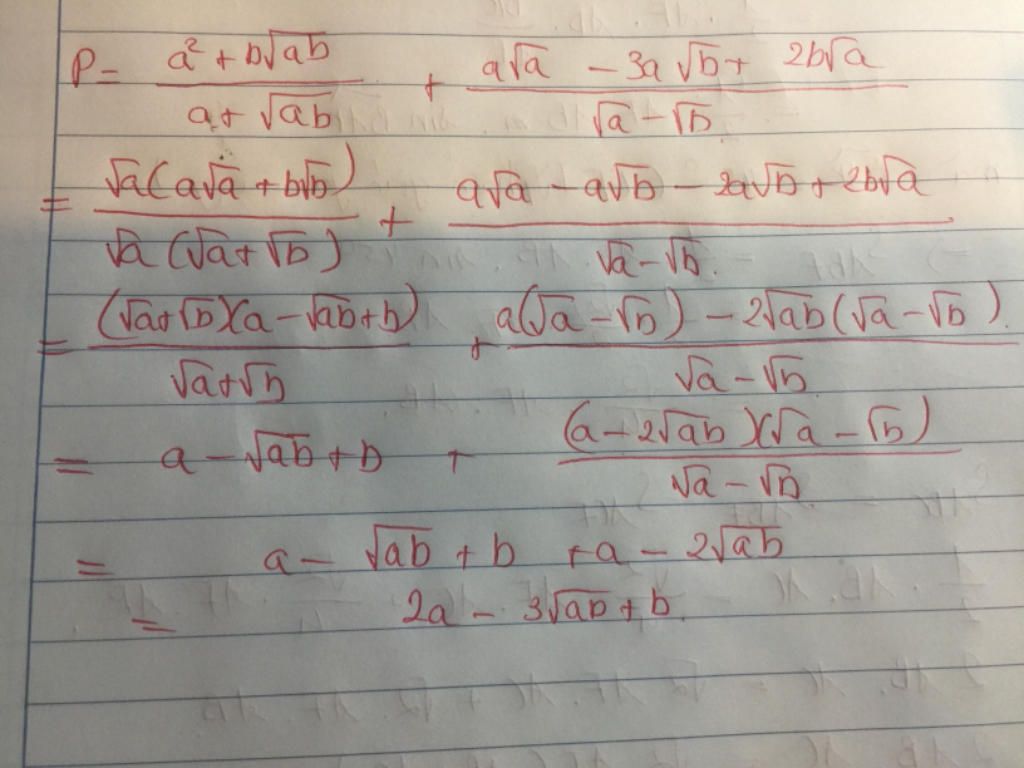 P = \frac{a² + b\sqrt{ab}}{a + \sqrt{ab}} + \frac{a\sqrt{a} - 3a\sqrt{b} + 2b\sqrt{a}}{\sqrt{a} - \sqrt{b}}
= \frac{\sqrt{a}(a\sqrt{a} + b\sqrt{b})}{\sqrt{a}(\sqrt{a} + \sqrt{b})} + \frac{a\sqrt{a} - a\sqrt{b} - 2a\sqrt{b} + 2b\sqrt{a}}{\sqrt{a} - \sqrt{b}}
= \frac{(\sqrt{a} + \sqrt{b})(a - \sqrt{ab} + b)}{\sqrt{a} + \sqrt{b}} + \frac{a(\sqrt{a} - \sqrt{b}) - 2\sqrt{ab}(\sqrt{a} - \sqrt{b})}{\sqrt{a} - \sqrt{b}}
= a - \sqrt{ab} + b + \frac{(a - 2\sqrt{ab})(\sqrt{a} - \sqrt{b})}{\sqrt{a} - \sqrt{b}}
= a - \sqrt{ab} + b + a - 2\sqrt{ab}
= 2a - 3\sqrt{ab} + b